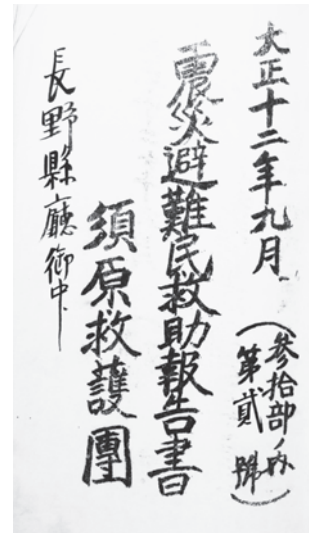 大正十二年九月
(參拾部ノ内
第貳號)
震災避難民救助報告書
須原救護團
長野縣廳御中